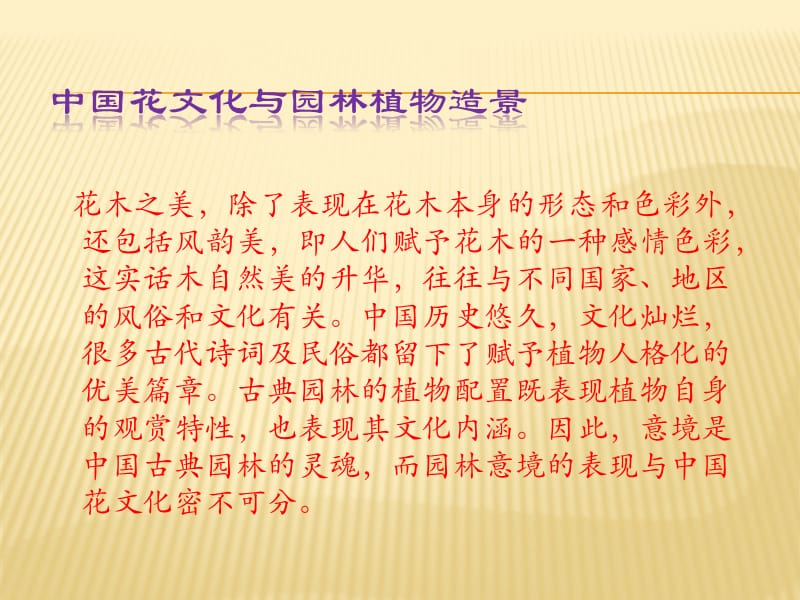 中国花文化与园林植物造景
花木之美，除了表现在花木本身的形态和色彩外，
还包括风韵美，即人们赋予花木的一种感情色彩，
这实话木自然美的升华，往往与不同国家、地区
的风俗和文化有关。中国历史悠久，文化灿烂，
很多古代诗词及民俗都留下了赋予植物人格化的
优美篇章。古典园林的植物配置既表现植物自身
的观赏特性，也表现其文化内涵。因此，意境是
中国古典园林的灵魂，而园林意境的表现与中国
花文化密不可分。